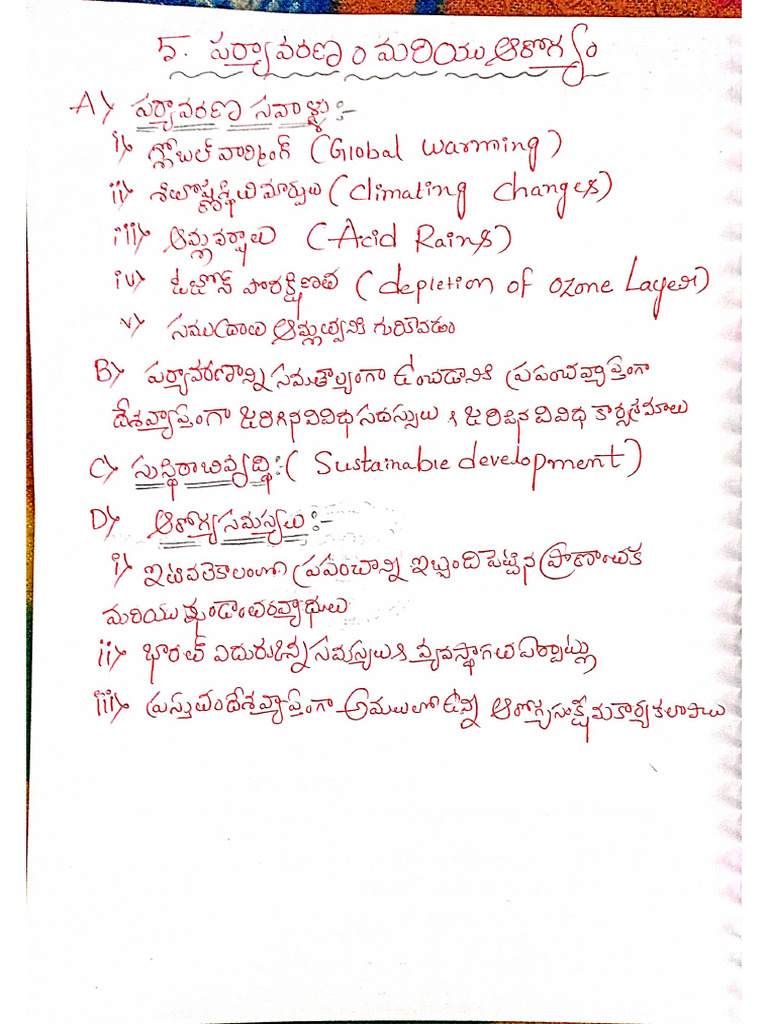 5. పర్యావరణం మరియు ఆరోగ్యం
A) పర్యావరణ సవాళ్ళు :-
i) గ్లోబల్ వార్మింగ్ (Global warming)
ii) శీతోష్ణస్థితి మార్పులు (climating changes)
iii) ఆమ్లవర్షాలు (Acid Rains)
iv) ఓజోన్ పొరక్షీణత (depletion of ozone Layer)
v) సముద్రాలు ఆమ్లత్వానికి గురికావడం
B) పర్యావరణాన్ని సమతుల్యంగా ఉంచడానికి ప్రపంచవ్యాప్తంగా
దేశవ్యాప్తంగా జరిగిన వివిధ సదస్సులు & జరిపిన వివిధ కార్యక్రమాలు
C) సుస్థిరాభివృద్ధి :- (Sustainable development)
D) ఆరోగ్య సమస్యలు :-
i) ఇటీవలికాలంలో ప్రపంచాన్ని ఇబ్బంది పెట్టిన ప్రాణాంతక
మరియు ఖండాంతర వ్యాధులు
ii) భారత్ ఎదుర్కొన్న సమస్యలు & వ్యవస్థాగత ఏర్పాట్లు
iii) ప్రస్తుతం దేశవ్యాప్తంగా అమలులో ఉన్న ఆరోగ్య సంక్షేమ కార్యకలాపాలు